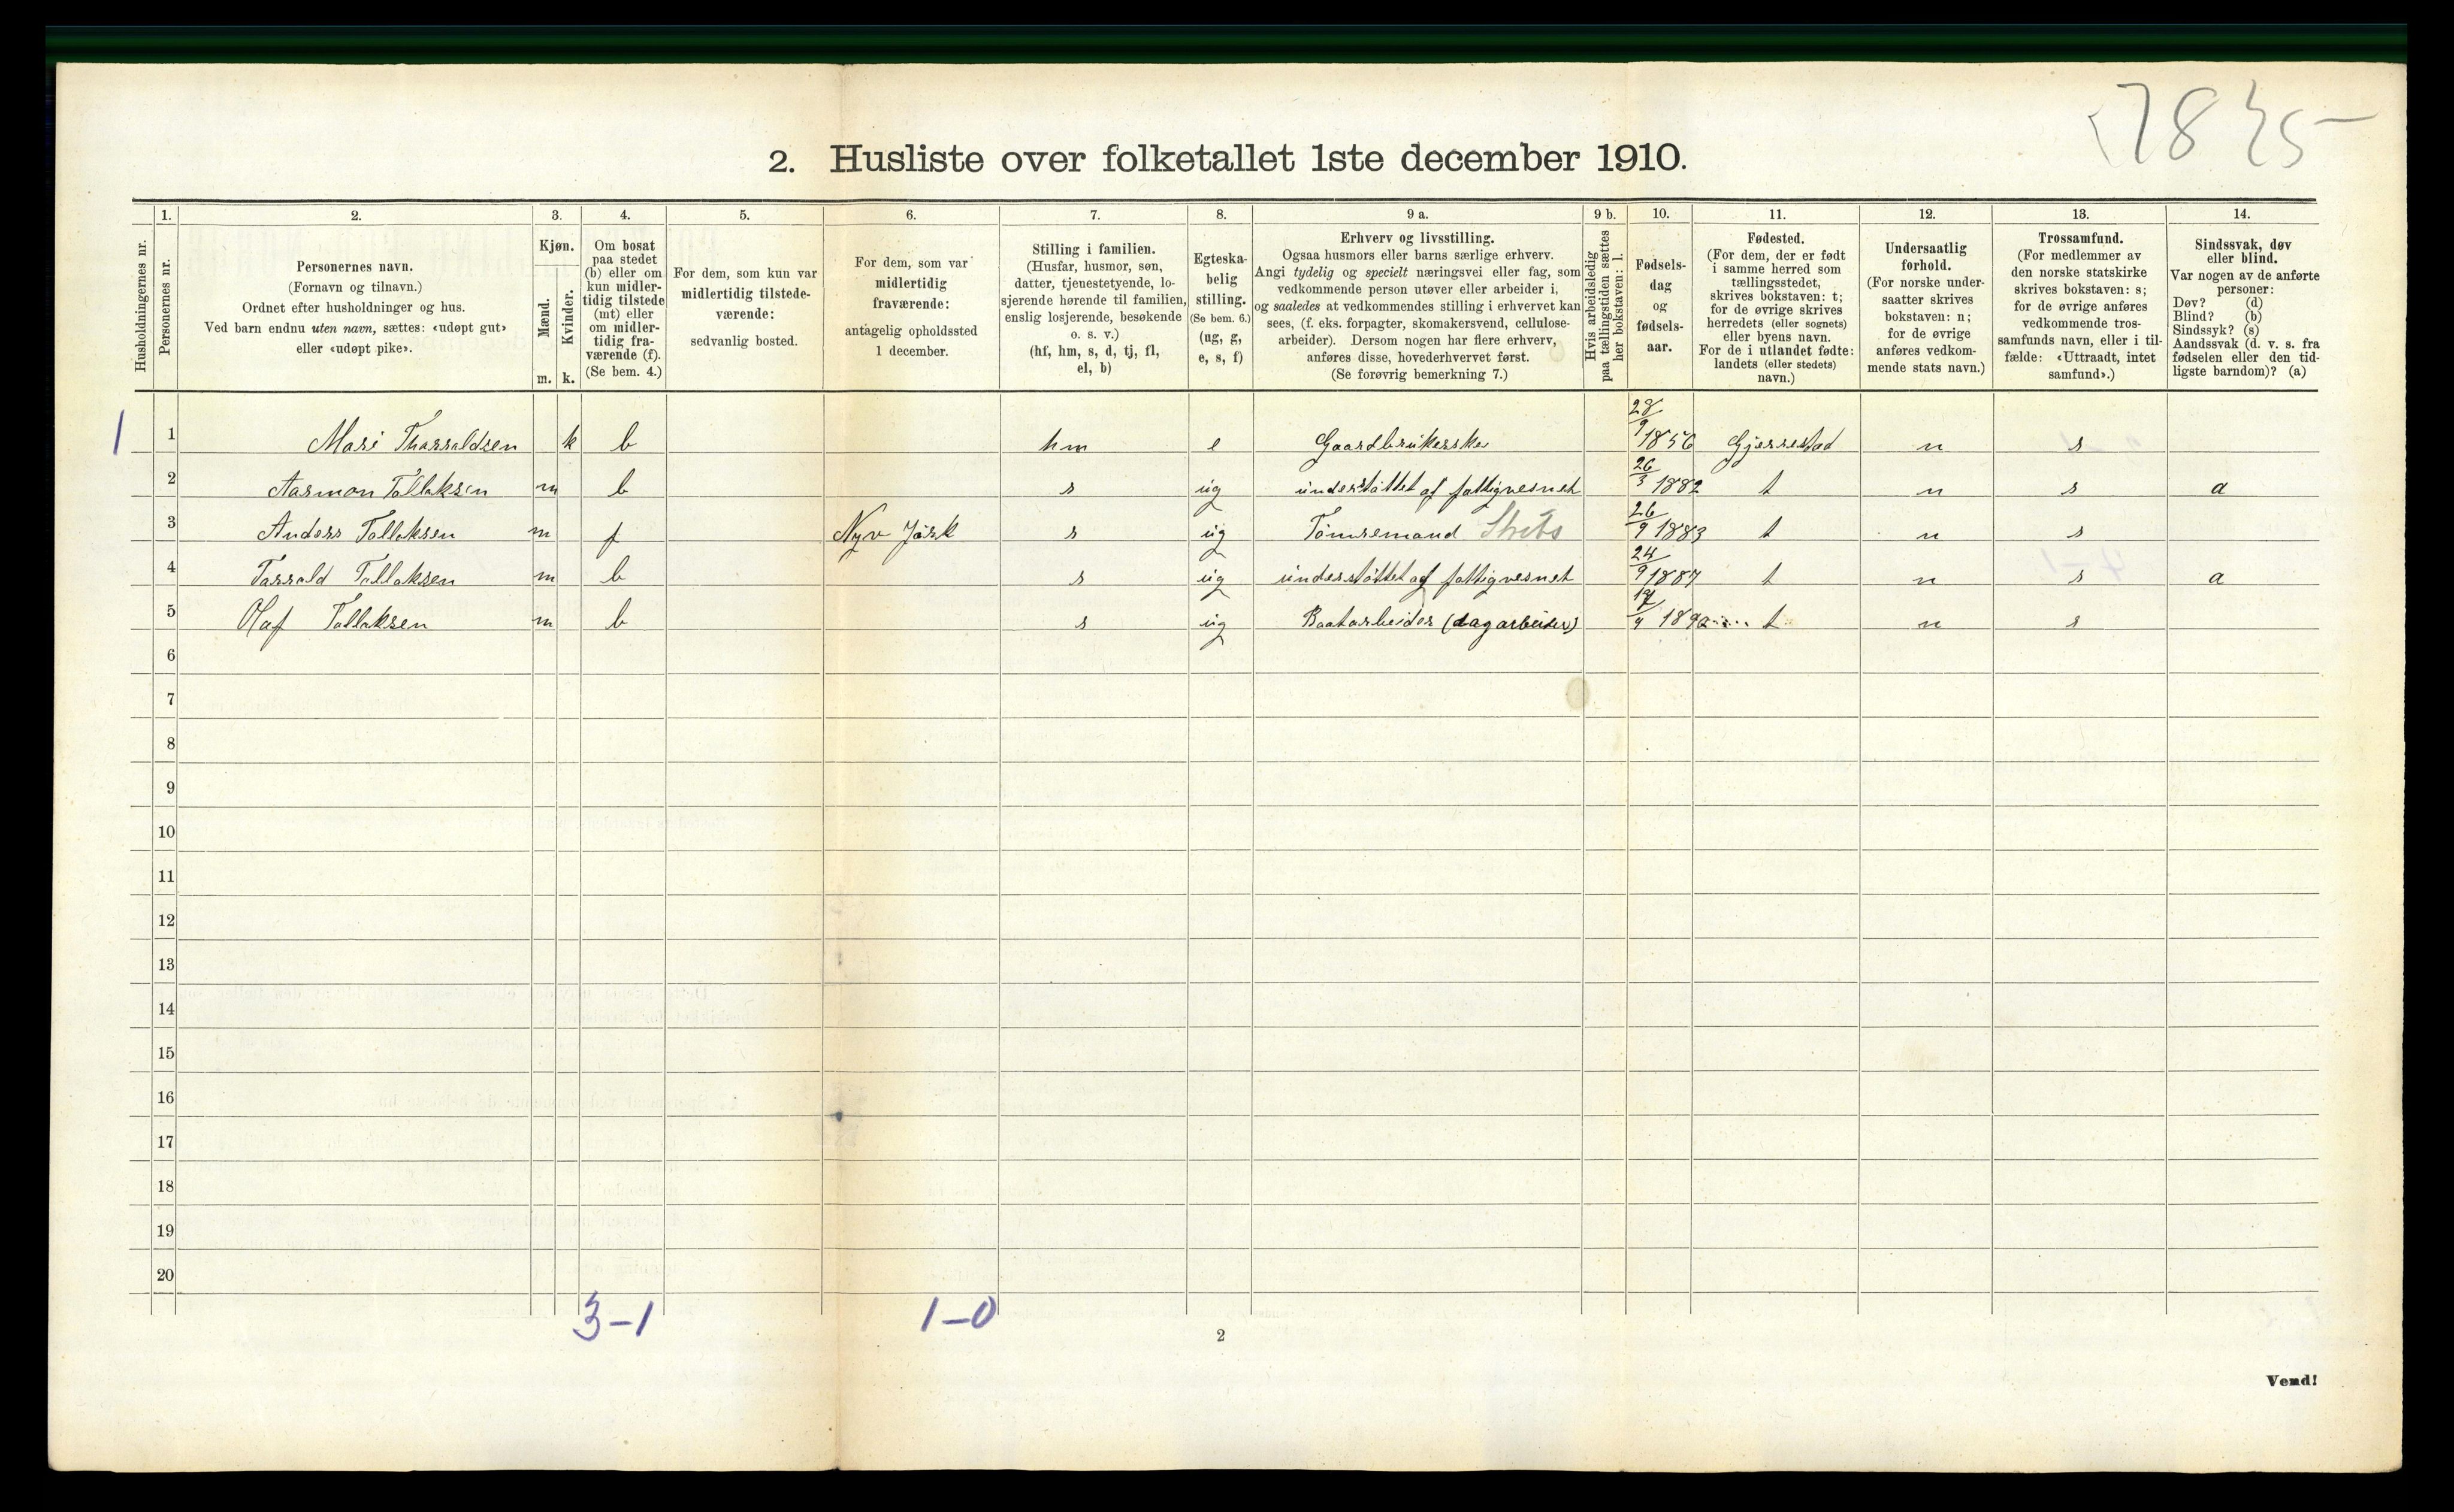 7835-
2. Husliste over folketallet 1ste december 1910.
1. 2. 3. 4. 5. 6. 7. 8. 9 a. 9 b. 10. 11. 12. 13. 14.
Husholdningernes nr.
Personernes nr.
Personernes navn.
(Fornavn og tilnavn.)
Ordnet efter husholdninger og hus.
Ved barn endnu uten navn, sættes: «udøpt gut»
eller «udøpt pike».
Kjøn.
Mænd.
m.
Kvinder.
k.
Om bosat
paa stedet
(b) eller om
kun midler-
tidig tilstede
(mt) eller
om midler-
tidig fra-
værende (f).
(Se bem. 4.)
For dem, som kun var
midlertidig tilstede-
værende:
sedvanlig bosted.
For dem, som var
midlertidig
fraværende:
antagelig opholdssted
1 december.
Stilling i familien.
(Husfar, husmor, søn,
datter, tjenestetyende, lo-
sjerende hørende til familien,
enslig losjerende, besøkende
o. s. v.)
(hf, hm, s, d, tj, fl,
el, b)
Egteska-
belig
stilling.
(Se bem. 6.)
(ug, g,
e, s, f)
Erhverv og livsstilling.
Ogsaa husmors eller barns særlige erhverv.
Angi tydelig og specielt næringsvei eller fag, som
vedkommende person utøver eller arbeider i,
og saaledes at vedkommendes stilling i erhvervet kan
sees, (f. eks. forpagter, skomakersvend, cellulose-
arbeider). Dersom nogen har flere erhverv,
anføres disse, hovederhvervet først.
(Se forøvrig bemerkning 7.)
Hvis arbeidsledig
paa tællingstiden sættes
her bokstaven: l.
Fødsels-
dag
og
fødsels-
aar.
Fødested.
(For dem, der er født
i samme herred som
tællingsstedet,
skrives bokstaven: t;
for de øvrige skrives
herredets (eller sognets)
eller byens navn.
For de i utlandet fødte:
landets (eller stedets)
navn.)
Undersaatlig
forhold.
(For norske under-
saatter skrives
bokstaven: n;
for de øvrige
anføres vedkom-
mende stats navn.)
Trossamfund.
(For medlemmer av
den norske statskirke
skrives bokstaven: s;
for de øvrige anføres
vedkommende tros-
samfunds navn, eller i til-
fælde: «Uttraadt, intet
samfund».)
Sindssvak, døv
eller blind.
Var nogen av de anførte
personer:
Døv? (d)
Blind? (b)
Sindssyk? (s)
Aandssvak (d. v. s. fra
fødselen eller den tid-
ligste barndom)? (a)
1 1 Mari Tharraldsen k b hm e Gaardbrukerske 28/9 1856 Gjerrestad n s
2 Aasmon Tallaksen m b s ug understøttet af fattigvesnet 26/3 1882 t n s a
3 Anders Tallaksen m f Nyv Jørk s ug Tømremand 26/9 1883 t n s
4 Tarrald Tallaksen m b s ug understøttet af fattigvesnet 24/9 1887 t n s a
5 Olaf Tallaksen m b s ug Baatarbeider (dagarbeider) t n s
6
7
8
9
10
11
12
13
14
15
16
17
18
19
20
3-1 1-0
2
Vend!